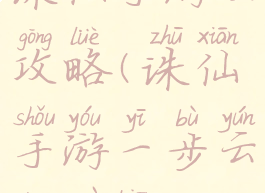 gōng lüè zhū xiān
攻略(诛仙
shǒu yóu yī bù yún
手游一步云